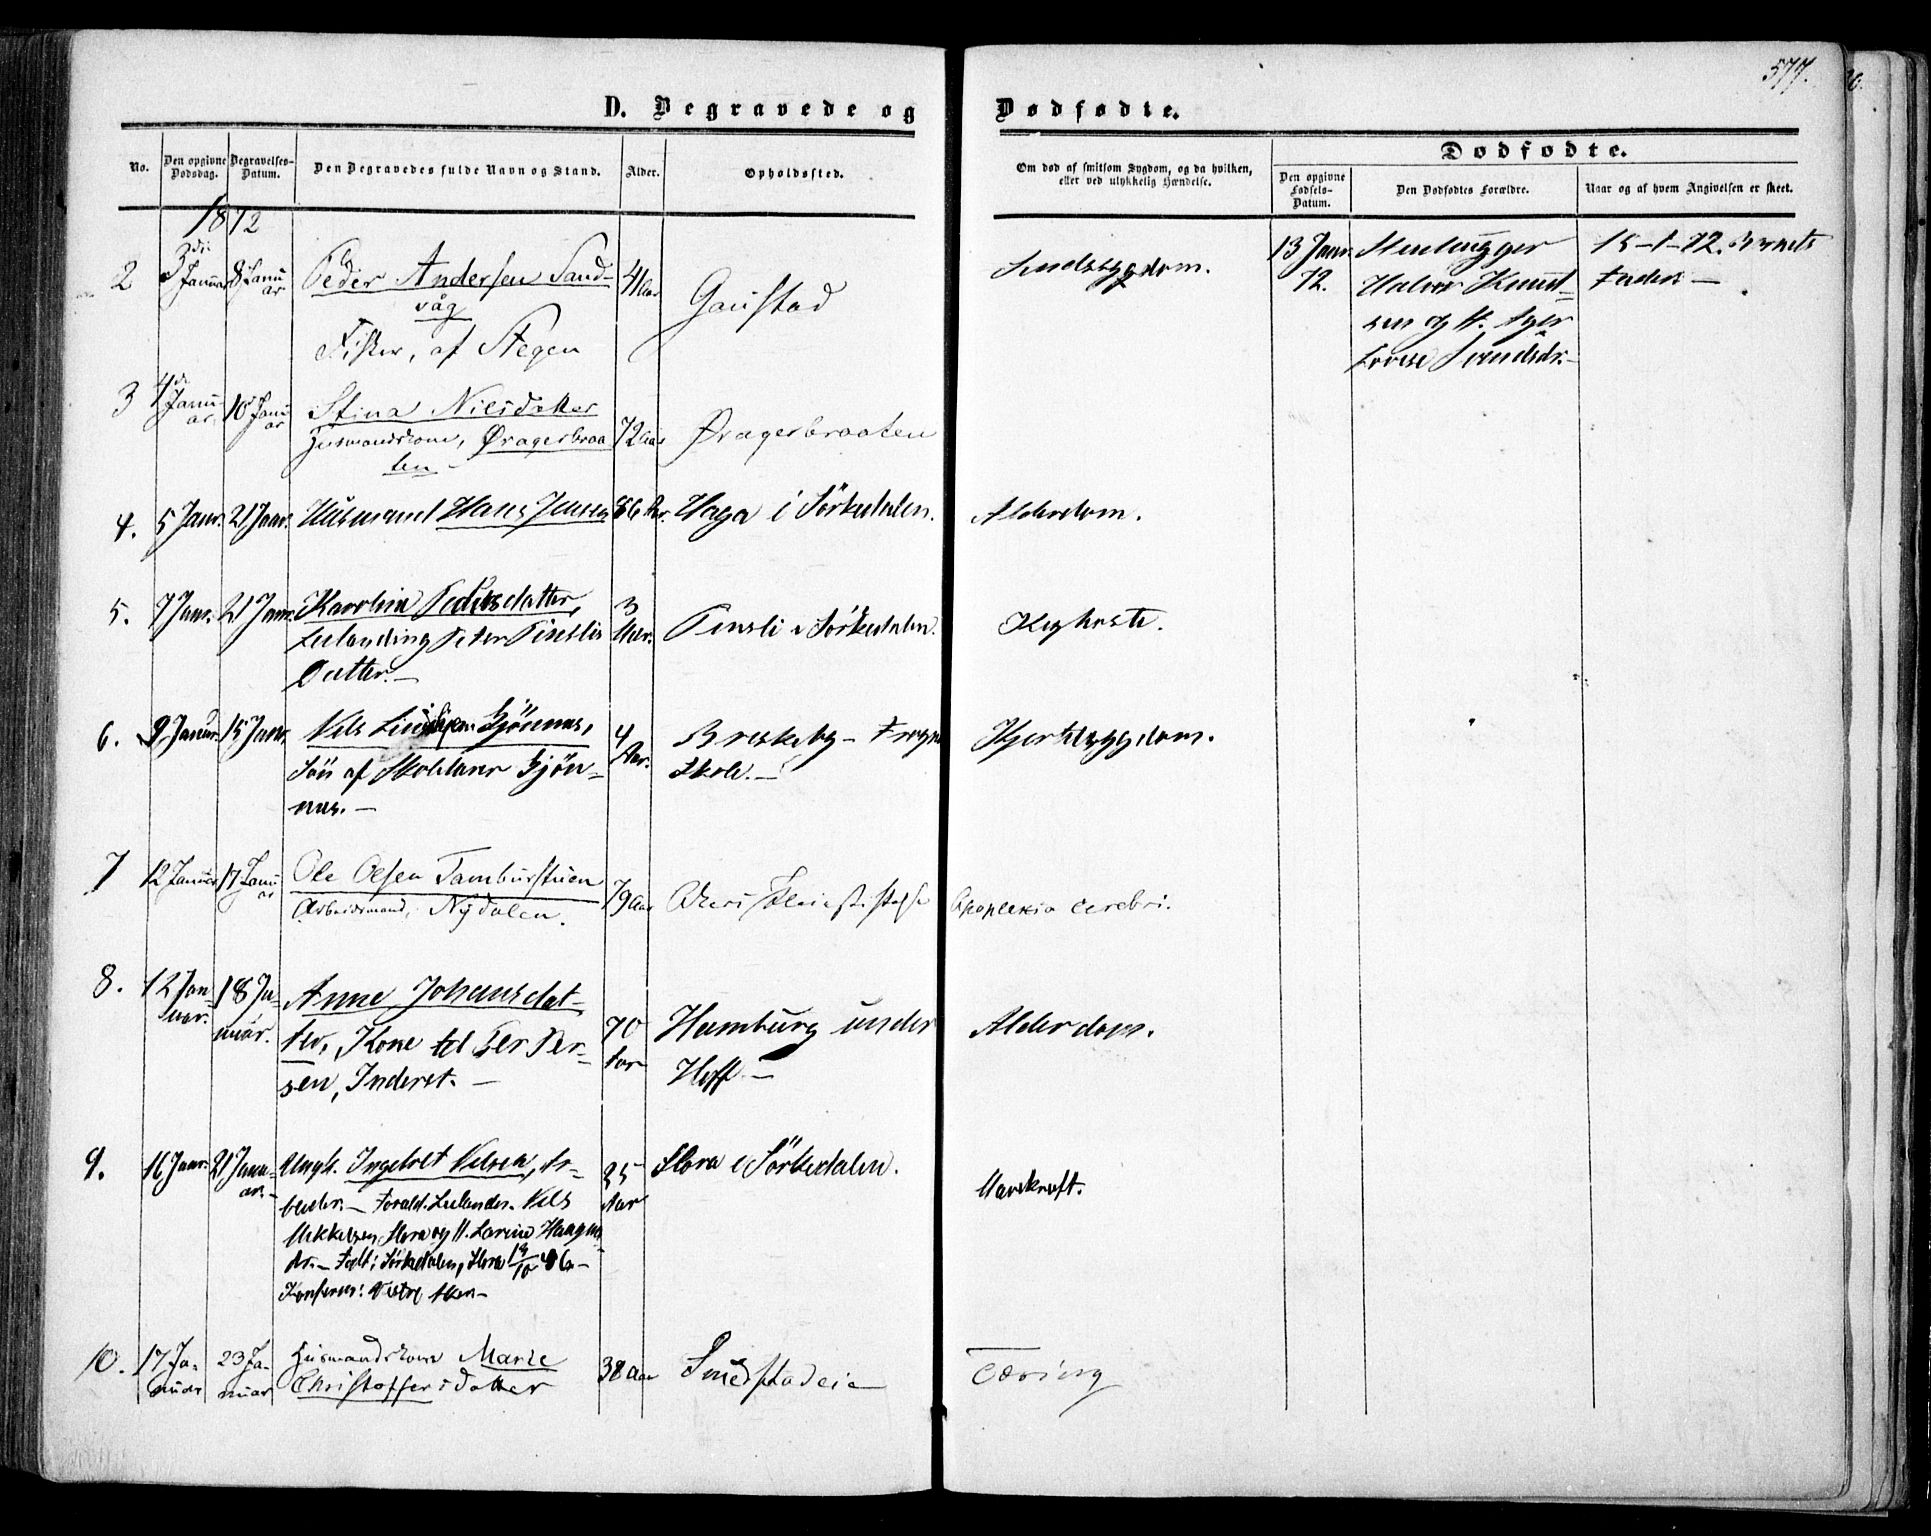 577.
D. Begravede og Dødfødte.
No.
Den opgivne Dødsdag.
Begravelses-Datum.
Den Begravedes fulde Navn og Stand.
Alder.
Opholdssted.
Om død af smitsom Sygdom, og da hvilken,
eller ved ulykkelig Hændelse.
Dødfødte.
Den opgivne Fødsels-Datum.
Den Dødfødtes Forældre.
Naar og af hvem Angivelsen er skeet.
1872
2
3 Januar
8 Januar
Peder Andersen Sand-
våg
Fisker, af Stegen
41 Aar
Gaustad
Sindssygdom.
13 Janr. 72.
Halvor Knud-
sen og H.
Lovise
15-1-72. Barnets
Fader. —
3
4 Januar.
10 Januar
Stina Nilsdatter
Husmandskone, Øragerbraa
ten
72 Aar
Øragerbraaten
4.
5 Janr.
21 Janr.
Husmand Hans Jensen
86 Ar.
Haga i Sörkedalen.
Alderdom.
5.
7 Janr.
21 Janr.
Karoline Pedersdatter,
Leilending Peter Pinslis
Datter. —
3
Pinsli i Sörkedalen.
Kighoste.
6.
9 Januar.
15 Janr.
Nils Gjönnes,
Sön af Skolelærer Gjön-
nes. —
4 Aar.
Briskeby — Frogn
Skole. —
Hjertesygdom.
7
12 Januar
17 Januar
Ole Olsen Tamburstuen
Arbeidsmand, Nydalen.
79 Aar
Apoplexia cerebri.
8.
12 Jan-
uar.
18 Ja-
nuar.
Anne Johansdat-
ter, Kone til Per Per-
sen, Inderst. —
70
Aar
Hamburg under
Hoff. —
Alderdom.
9.
16 Janr.
21 Janu-
ar. —
Ungk. Ingebret Nilsen, Ar-
beider. — Foræld. Leilænder. Nils
Mikkelsen Flora og H. Larine Haagens
dr. — Född i Sörkedalen, Flora 19/10 46 —
Konfirmer: Vestre Aker —
25
Aar
Flora i Sörkedalen.
Mavekræft.
10.
17 Ja-
nuar
23 Ja-
nuar
Husmandskone Marie
Christoffersdatter
38 Aar
Smedstadeie
Tæring